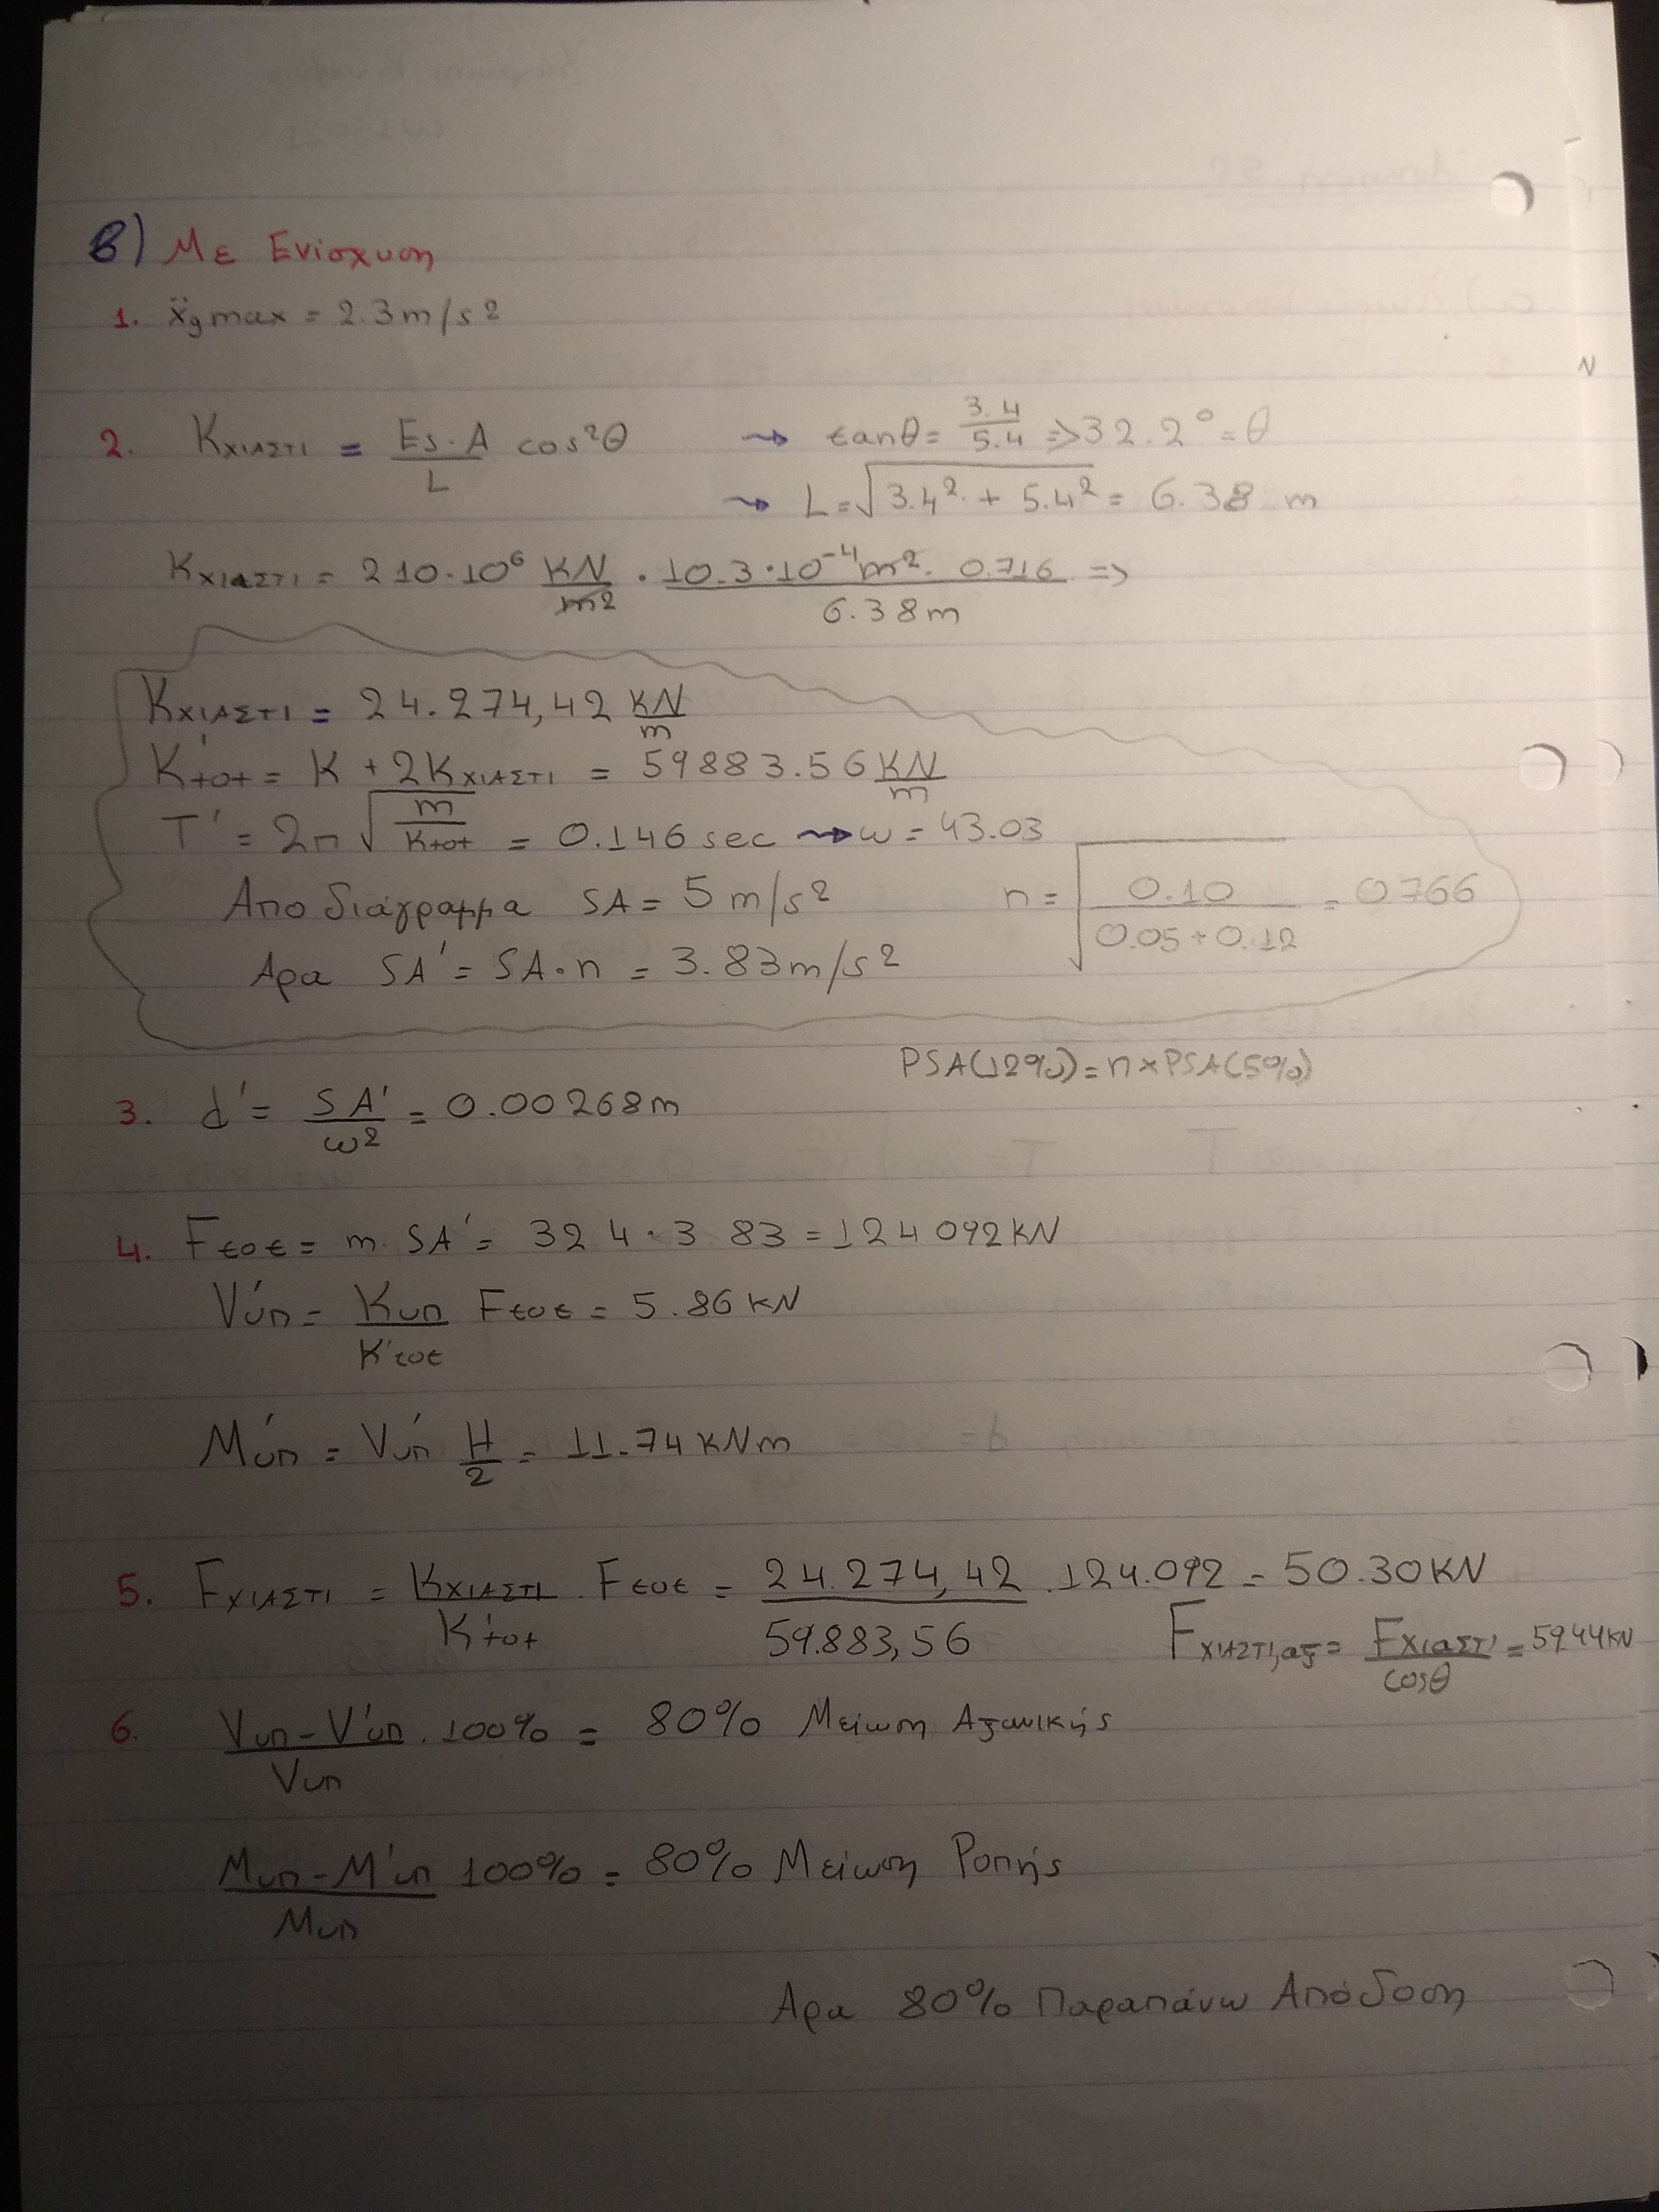 β) Με Ενίσχυση
1. ẍgmax = 2.3m/s2
2. Κχιαστι = Es·A/L cos²θ → tanθ = 3.4/5.4 => 32.2° = θ
→ L = √(3.4² + 5.4²) = 6.38 m
Κχιαστι = 210·10⁶ KN/m2 · 10.3·10⁻⁴m². 0.716/6.38m =>
Κχιαστι = 24.274,42 KN/m
K'tot = K + 2Κχιαστι = 59883.56 KN/m
T' = 2π √(m/Ktot) = 0.146 sec → ω = 43.03
Απο διάγραμμα SA = 5 m/s² n = √(0.10/(0.05+0.12)) = 0766
Αρα SA' = SA·n = 3.83m/s2
PSA(12%) = n×PSA(5%)
3. d' = SA'/ω2 = 0.00268m
4. Fτοτ = m. SA' = 32 4 · 3 83 = 124 092 KN
V'υπ = Κυπ/Κ'τοτ Fτοτ = 5.86 KN
M'υπ = V'υπ H/2 = 11.74 KNm
5. Fχιαστι = Κχιαστι/K'tot . Fτοτ = 24.274,42/59.883,56 .124.092 = 50.30KN
Fχιαστι,αξ = Fχιαστι/cosθ = 59.44KN
6. Vυπ-V'υπ/Vυπ . 100% = 80% Μείωση Αξονικής
Mυπ-M'υπ/Mυπ 100% = 80% Μείωση Ροπής
Αρα 80% Παραπάνω Απόδοση